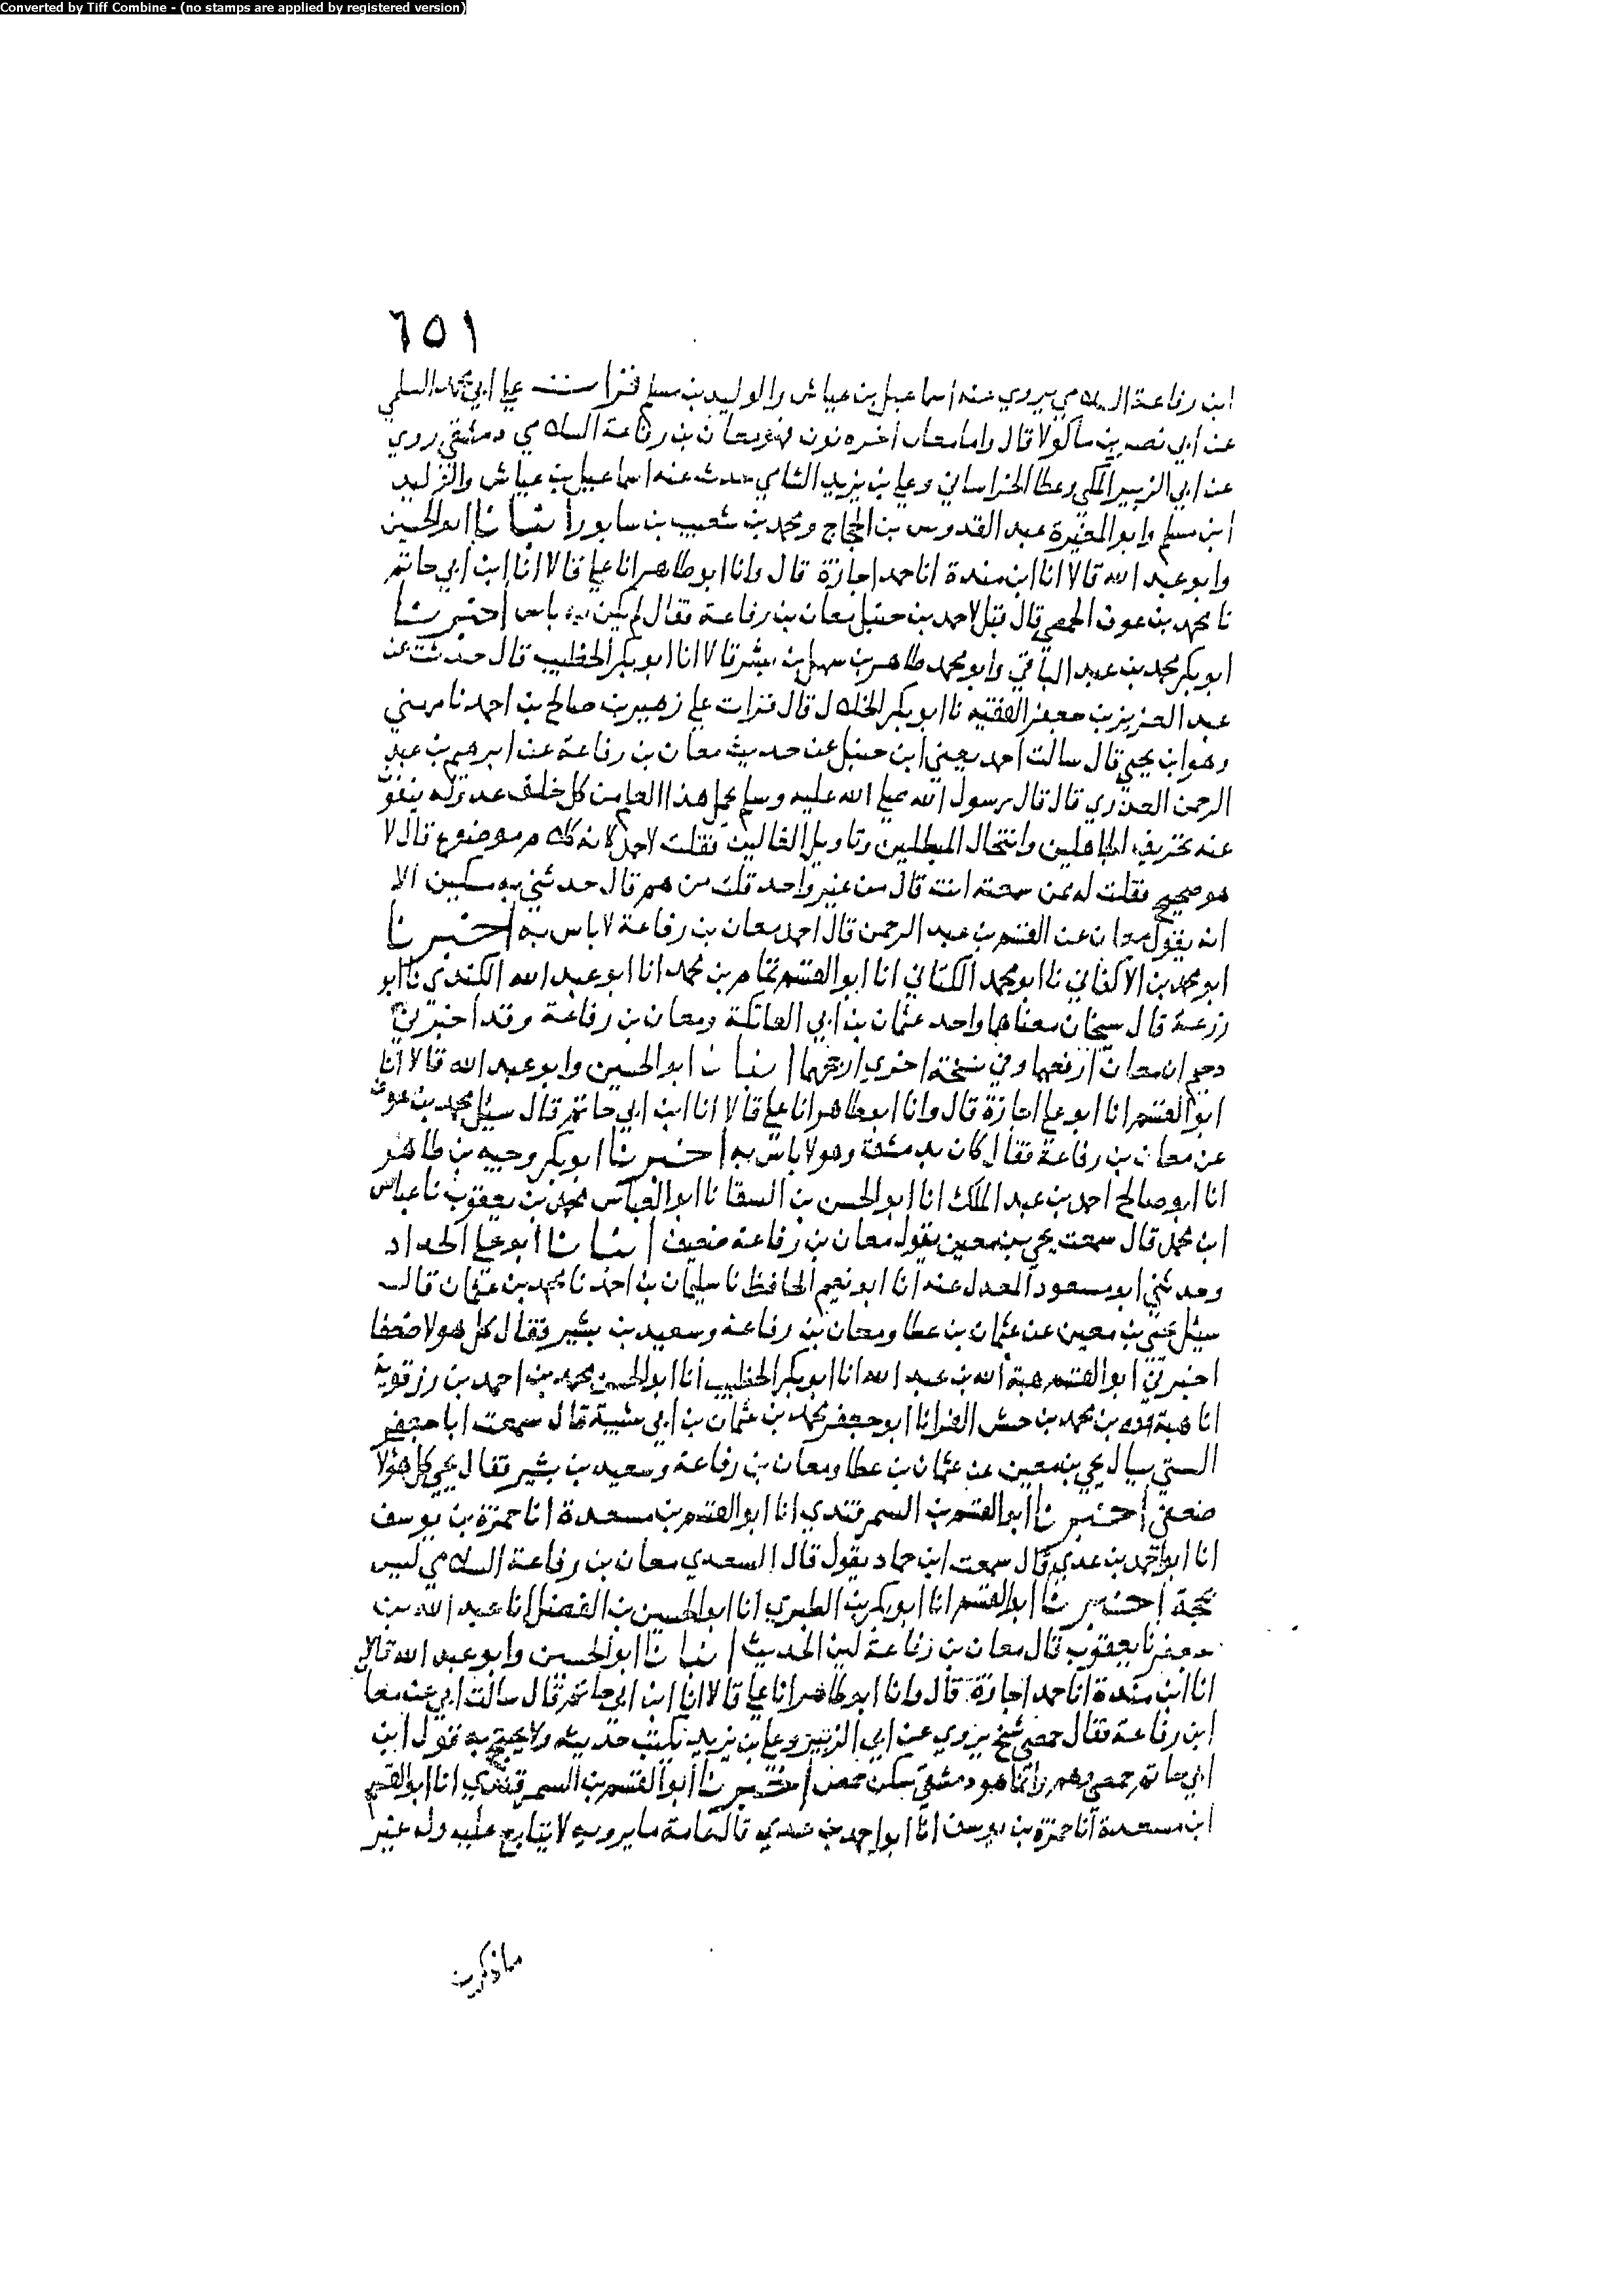 Converted by Tiff Combine - (no stamps are applied by registered version)
٦٥١
ابن رفاعة السلامي يروي عنه اسماعيل بن عياش والوليد بن مسلم قرات علي ابي محمد السلمي
عن ابي نصر بن ماكولا قال واما معان اخره نون فهو معان بن رفاعة السلامي دمشقي روي
عن ابي الزبير المكي وعطا الخراساني وعلي بن يزيد الشامي حدث عنه اسماعيل بن عياش والوليد
ابن مسلم وابو المغيرة عبد القدوس بن الحجاج ومحمد بن شعيب بن سابور انبانا ابو الحسين
وابو عبد الله قالا انا ابن مندة انا حمد اجازة قال وانا ابو طاهر انا علي قالا انا ابن ابي حاتم
نا محمد بن عوف الحمصي قال قيل لاحمد بن حنبل معان بن رفاعة فقال لم يكن به باس اخبرنا
ابو بكر محمد بن عبد الباقي وابو محمد طاهر بن سهل بن بشر قالا انا ابو بكر الخطيب قال حدثت عن
عبد العزيز بن جعفر الفقيه نا ابو بكر الخلال قال قرات علي زهير بن صالح بن احمد نا مهني
وهو ابن يحيي قال سالت احمد يعني ابن حنبل عن حديث معان بن رفاعة عن ابرهيم بن عبد
الرحمن العذري قال قال رسول الله صلي الله عليه وسلم يحمل هذا العلم من كل خلف عدوله ينفون
عنه تحريف الجاهلين وانتحال المبطلين وتاويل الغالين فقلت لاحمد كانه كلام موضوع قال لا
هو صحيح فقلت له ممن سمعته انت قال من غير واحد قلت من هم قال حدثني به مسكين الا
انه يقول معان عن القسم بن عبد الرحمن قال احمد معان بن رفاعة لا باس به اخبرنا
ابو محمد بن الاكفاني نا ابو محمد الكتاني انا ابو القسم تمام بن محمد انا ابو عبد الله الكندي نا ابو
زرعة قال شيخان معناهما واحد عثمان بن ابي العاتكة ومعان بن رفاعة وقد اخبرني
دحيم ان معان ارفعهما وفي نسخة اخري ارجحهما انبانا ابو الحسين وابو عبد الله قالا انا
ابو القسم انا ابو علي اجازة قال وانا ابو طاهر انا علي قالا انا ابن ابي حاتم قال سئل محمد بن عوف
عن معان بن رفاعة فقال كان بدمشق وهو لا باس به اخبرنا ابو بكر وجيه بن طاهر
انا ابو صالح احمد بن عبد الملك انا ابو الحسن بن السقا نا ابو العباس محمد بن يعقوب نا عباس
ابن محمد قال سمعت يحيي بن معين يقول معان بن رفاعة ضعيف انبانا ابو علي الحداد
وحدثني ابو مسعود المعدل عنه انا ابو نعيم الحافظ نا سليمان بن احمد نا محمد بن عثمان قال
سيئل يحيي بن معين عن عثمان بن عطا ومعان بن رفاعة وسعيد بن بشير فقال كل هولا ضعفا
اخبرني ابو القسم هبة الله بن عبد الله انا ابو بكر الخطيب انا ابو الحسن محمد بن احمد بن رزقوية
انا هبة الله بن محمد بن حبش الفرا نا ابو جعفر محمد بن عثمان بن ابي شيبة قال سمعت ابا جعفر
السستي يسال يحيي بن معين عن عثمان بن عطا ومعان بن رفاعة وسعيد بن بشير فقال يحيي كل هؤلا
ضعفي اخبرنا ابو القسم بن السمرقندي انا ابو القسم بن مسعدة انا حمزة بن يوسف
انا ابو احمد بن عدي قال سمعت ابن حماد يقول قال السعدي معان بن رفاعة السلامي ليس
بحجة اخبرنا ابو القسم انا ابو بكر بن الطبري انا ابو الحسين بن الفضل انا عبد الله بن
جعفر نا يعقوب قال معان بن رفاعة لين الحديث انبانا ابو الحسين وابو عبد الله قالا
انا ابن مندة انا حمد اجازة قال وانا ابو طاهر انا علي قالا انا ابن ابي حاتم قال سالت ابي عن معا
ابن رفاعة فقال حمصي شيخ يروي عن ابي الزبير وعلي بن يزيد يكتب حديثه ولا يحتج به قول ابن
ابي حاتم حمصي وهم وانما هو دمشقي سكن حمص اخبرنا ابو القسم بن السمرقندي انا ابو القسم
ابن مسعدة انا حمزة بن يوسف انا ابو احمد بن عدي قال عامة ما يرويه لا يتابع عليه وله غير
ماذكرت